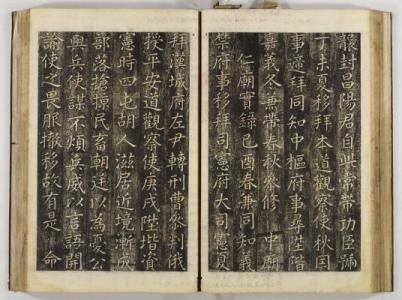 襲封昌陽君自此常帶功臣號
丁未夏移拜本道觀察使秋因
事遞拜同知中樞府事尋陞階
嘉義冬兼帶春秋參修 中廟
仁廟實錄己酉春兼同知義
禁府事移拜司憲府大司憲夏
拜漢城府左尹轉刑曹參判俄
授平安道觀察使庚戌陞階資
憲時四屯胡人滋居近境漸成
部落搶掠民畜朝廷以為憂公
與兵使謀不煩兵威以言語開
諭使之畏服撤移故有是 命